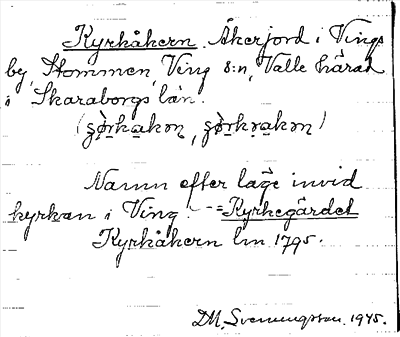 Kyrkåkern. Åkerjord i Vings
by, Stommen, Ving s:n, Valle härad
i Skaraborgs län.
Namn efter läge invid
kyrkan i Ving. = Kyrkegärdet
Kyrkåkern lm 1795.
D.M. Svenungsson 1945.